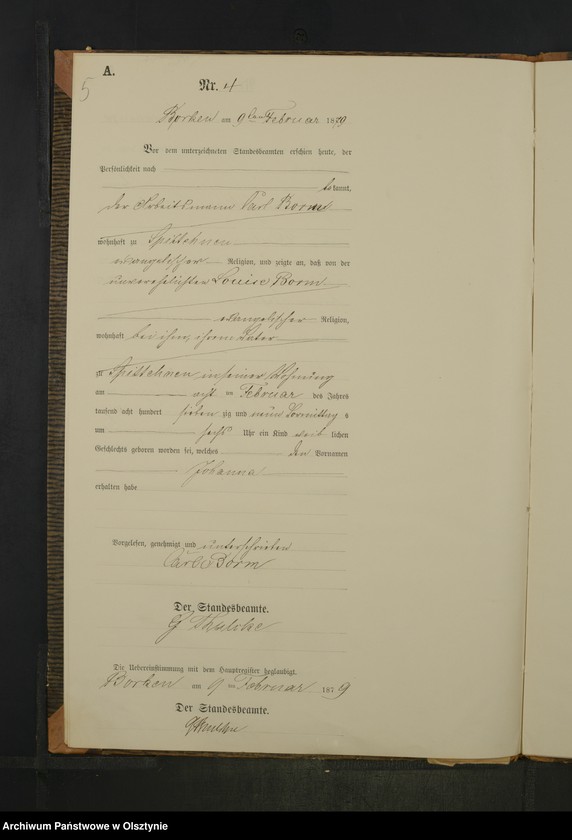 A.
5
Nr. 4
Borken am 9ten Februar 1879
Vor dem unterzeichneten Standesbeamten erschien heute, der
Persönlichkeit nach
bekannt,
der Arbeitsmann Carl Borm
wohnhaft zu Spittehnen
evangelischer Religion, und zeigte an, daß von der
unverehelichten Louise Borm
evangelischer Religion,
wohnhaft bei ihm, ihrem Vater
zu Spittehnen in seiner Wohnung
am acht ten Februar des Jahres
tausend acht hundert sieben zig und neun Vormittag s
um sechs Uhr ein Kind weib lichen
Geschlechts geboren worden sei, welches den Vornamen
Johanna
erhalten habe
Vorgelesen, genehmigt und unterschrieben
Carl Borm
Der Standesbeamte.
G
Die Uebereinstimmung mit dem Hauptregister beglaubigt.
Borken am 9 ten Februar 1879
Der Standesbeamte.
Archiwum Państwowe w Olsztynie